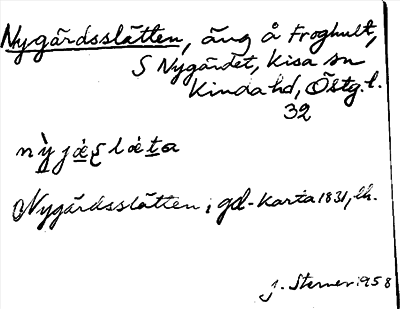 Nygärdsslätten, äng å Froghult,
S Nygärdet, Kisa sn
Kinda hd, Östg. l.
32
Nygärdsslätten, gd-karta 1831, lh.
J. Sterner 1958